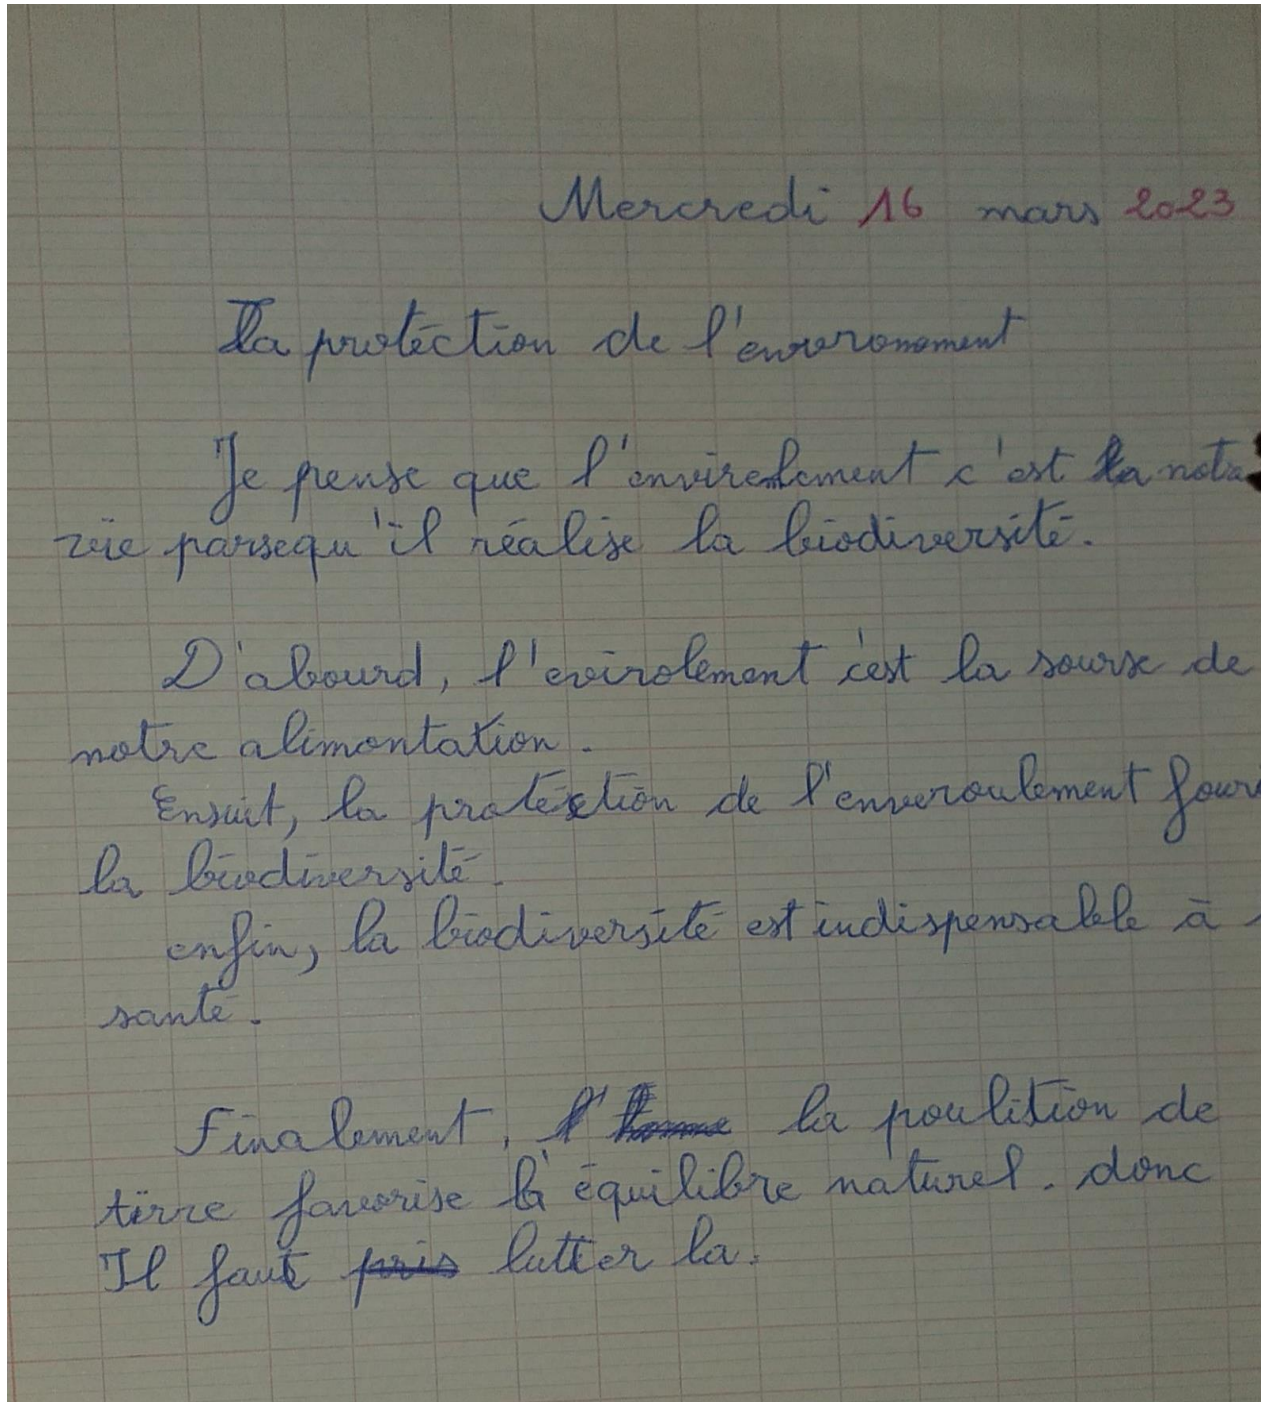 Mercredi 16 mars 2023
La protéction de l'enveronoment
Je pense que l'environlement c'est notre
vie parsequ'il réalise la biodiversité.
D'abourd, l'evirolement c'est la sourse de
notre alimontation.
Ensuit, la protéction de l'enveroulement
la biodiversité.
enfin, la biodiversité est indispensable à
santé.
Finalement, l' la poulition de
terre favorise l'équilibre naturel. donc
Il faut pris lutter la.